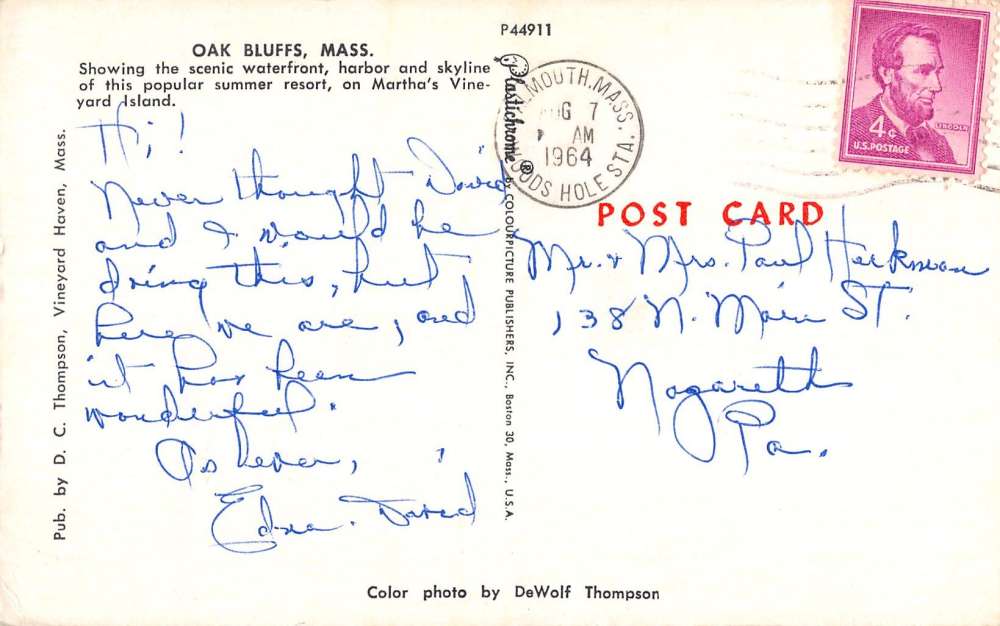 P44911
OAK BLUFFS, MASS.
Showing the scenic waterfront, harbor and skyline
of this popular summer resort, on Martha's Vine-
yard Island.
Pub. by D. C. Thompson, Vineyard Haven, Mass.
Hi!
Never thought David
and I would be
doing this, but
here we are, and
it has been
wonderful.
As ever,
Edna. David
Plastichrome® by COLOURPICTURE PUBLISHERS, INC., Boston 30, Mass., U.S.A.
FALMOUTH, MASS.
AUG 7
AM
1964
WOODS HOLE STA.
4¢
LINCOLN
U.S. POSTAGE
POST CARD
Mr. & Mrs. Paul Heckman
138 N. Main St.
Nazareth
Pa.
Color photo by DeWolf Thompson